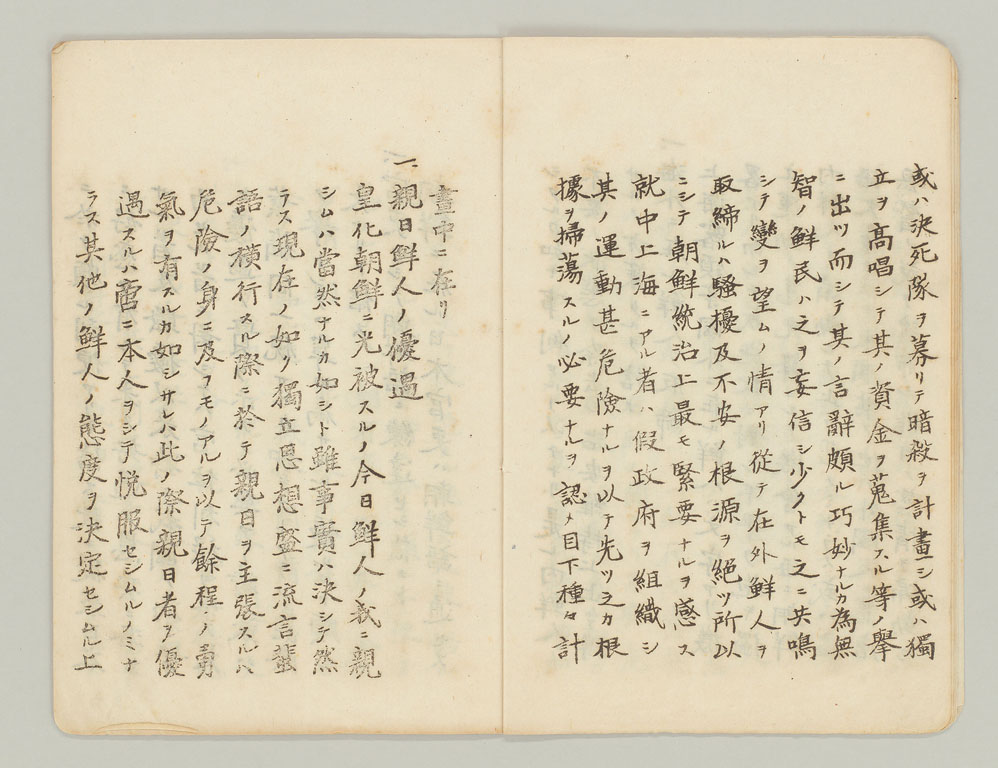 或ハ決死隊ヲ募リテ暗殺ヲ計畫シ或ハ獨
立ヲ高唱シテ其ノ資金ヲ蒐集スル等ノ擧
ニ出ツ而シテ其ノ言辭頗ル巧妙ナルカ為無
智ノ鮮民ハ之ヲ妄信シ少クトモ之ニ共鳴
シテ變ヲ望ムノ情アリ從テ在外鮮人ヲ
取締ルハ騷擾及不安ノ根源ヲ絶ツ所以
ニシテ朝鮮統治上最モ緊要ナルヲ感ス
就中上海ニアル者ハ假政府ヲ組織シ
其ノ運動甚危險ナルヲ以テ先ツ之カ根
據ヲ掃蕩スルノ必要ナルヲ認メ目下種々計
畫中ニ在リ
一、親日鮮人ノ優遇
皇化朝鮮ニ光被スルノ今日鮮人ノ我ニ親
シムハ當然ナルカ如シト雖事實ハ決シテ然
ラス現在ノ如ク獨立思想盛ニ流言蜚
語ノ横行スル際ニ於テ親日ヲ主張スルハ
危險ノ身ニ及フモノアルヲ以テ餘程ノ勇
氣ヲ有スルカ如シサレハ此ノ際親日者ヲ優
遇スルハ啻ニ本人ヲシテ悦服セシムルノミナ
ラス其他ノ鮮人ノ態度ヲ決定セシムル上